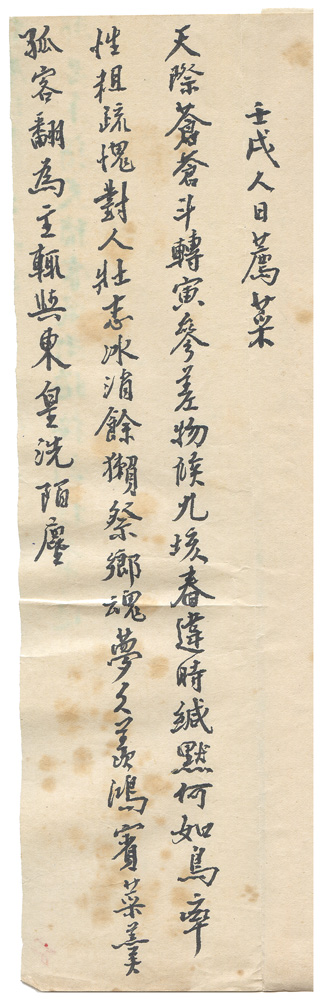 壬戌人日薦菜
天際蒼蒼斗轉寅參差物候九垓春違時緘默何如鳥率
性粗疏愧對人壯志冰消餘獺祭鄉魂夢久羨鴻賓菜羹
孤客翻為主輒與東皇洗陌塵